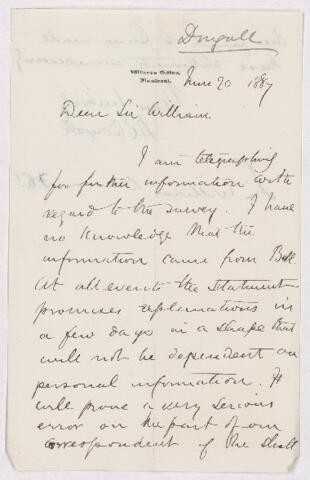 Dougall
Witness Office,
Montreal,
June 20 1887
Dear Sir William
I am telegraphing
for further information with
regard to the survey. I have
no knowledge that the
information came from Bell.
At all events the statement
promises explanations in
a few days in a shape that
will not be dependent on
personal information. It
will prove a very serious
error on the part of our
correspondent if he shall